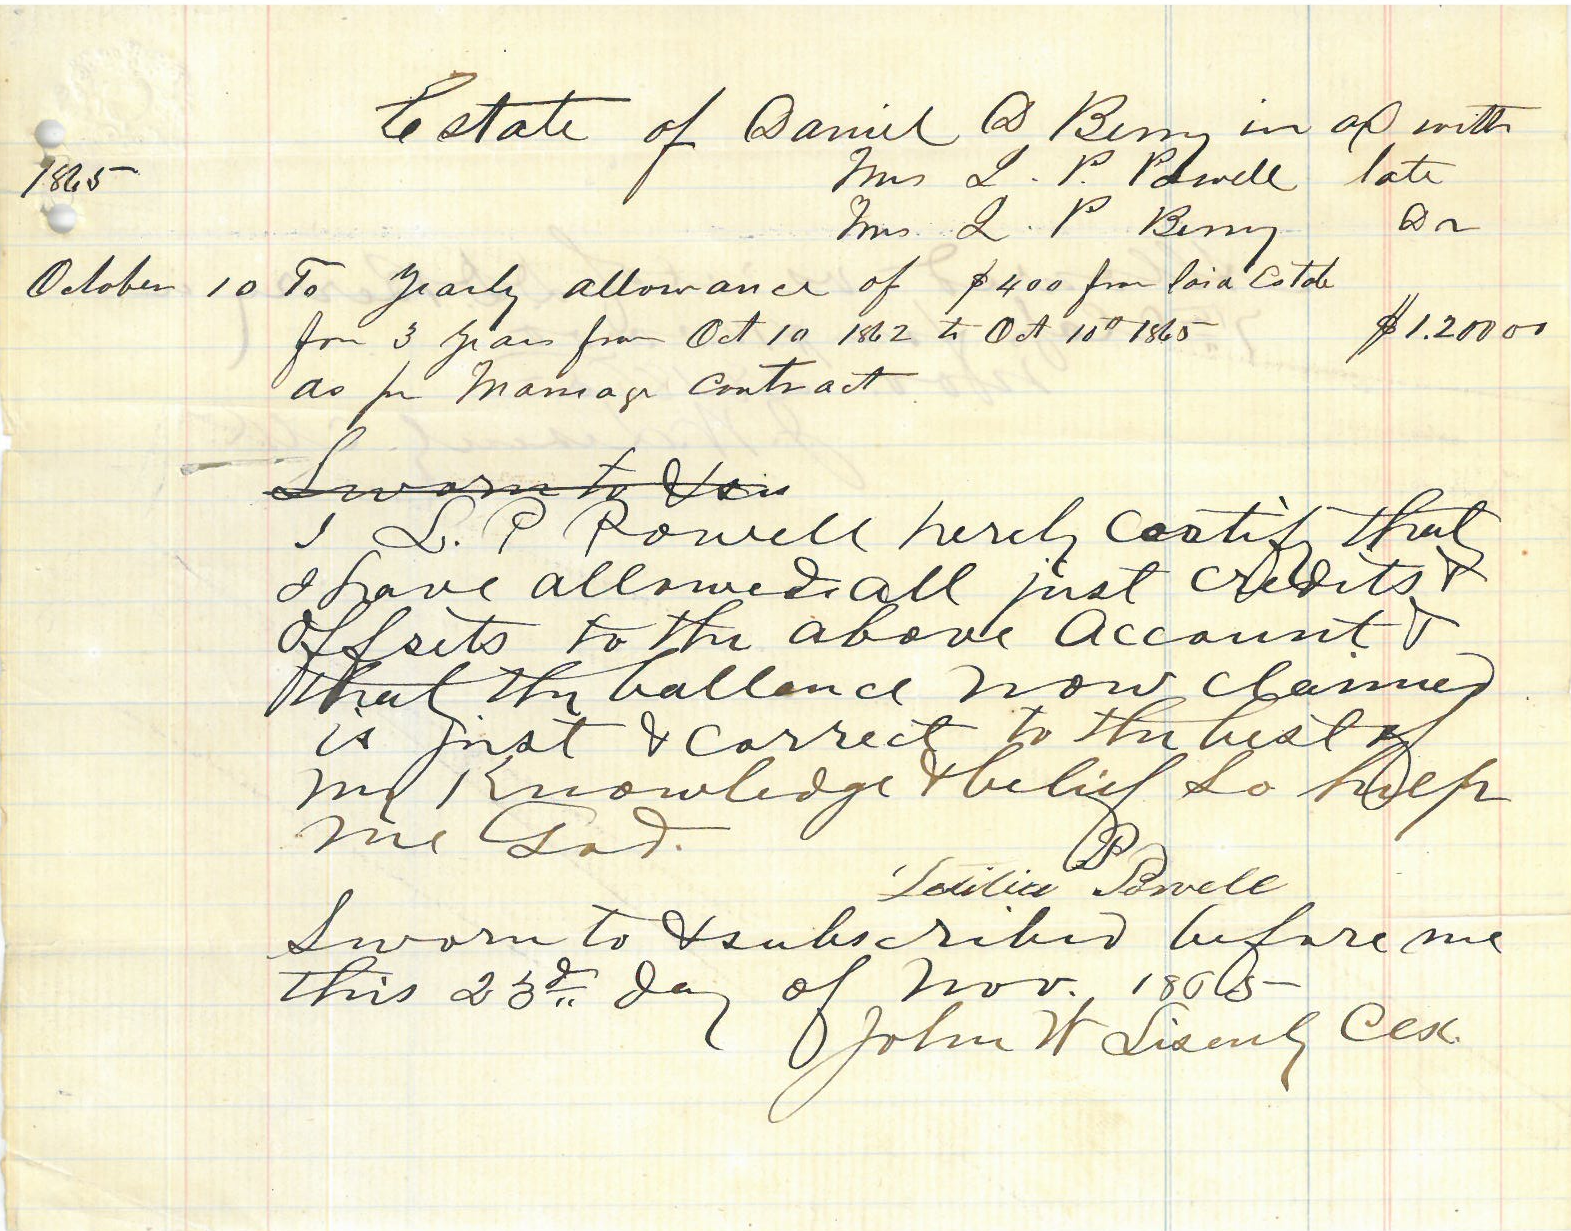 Estate of Daniel D Berry in a/c with
1865 Mrs L. P. Powell late
Mrs. L. P Berry Dr
October 10 To Yearly allowance of $400 from said Estate
for 3 years from Oct 10 1862 to Oct 10th 1865 $1.200 00
as per Marriage Contract
Sworn to & su
I L. P Powell herely certify that
I have allowed all just credits &
offsets to the above Account &
that the ballance now claimed
is just & correct to the best of
my Knowledge & belief So help
me God.
Latilia P Powell
Sworn to & subscribed before me
this 23rd day of Nov. 1865
John W Lisenby Clk.